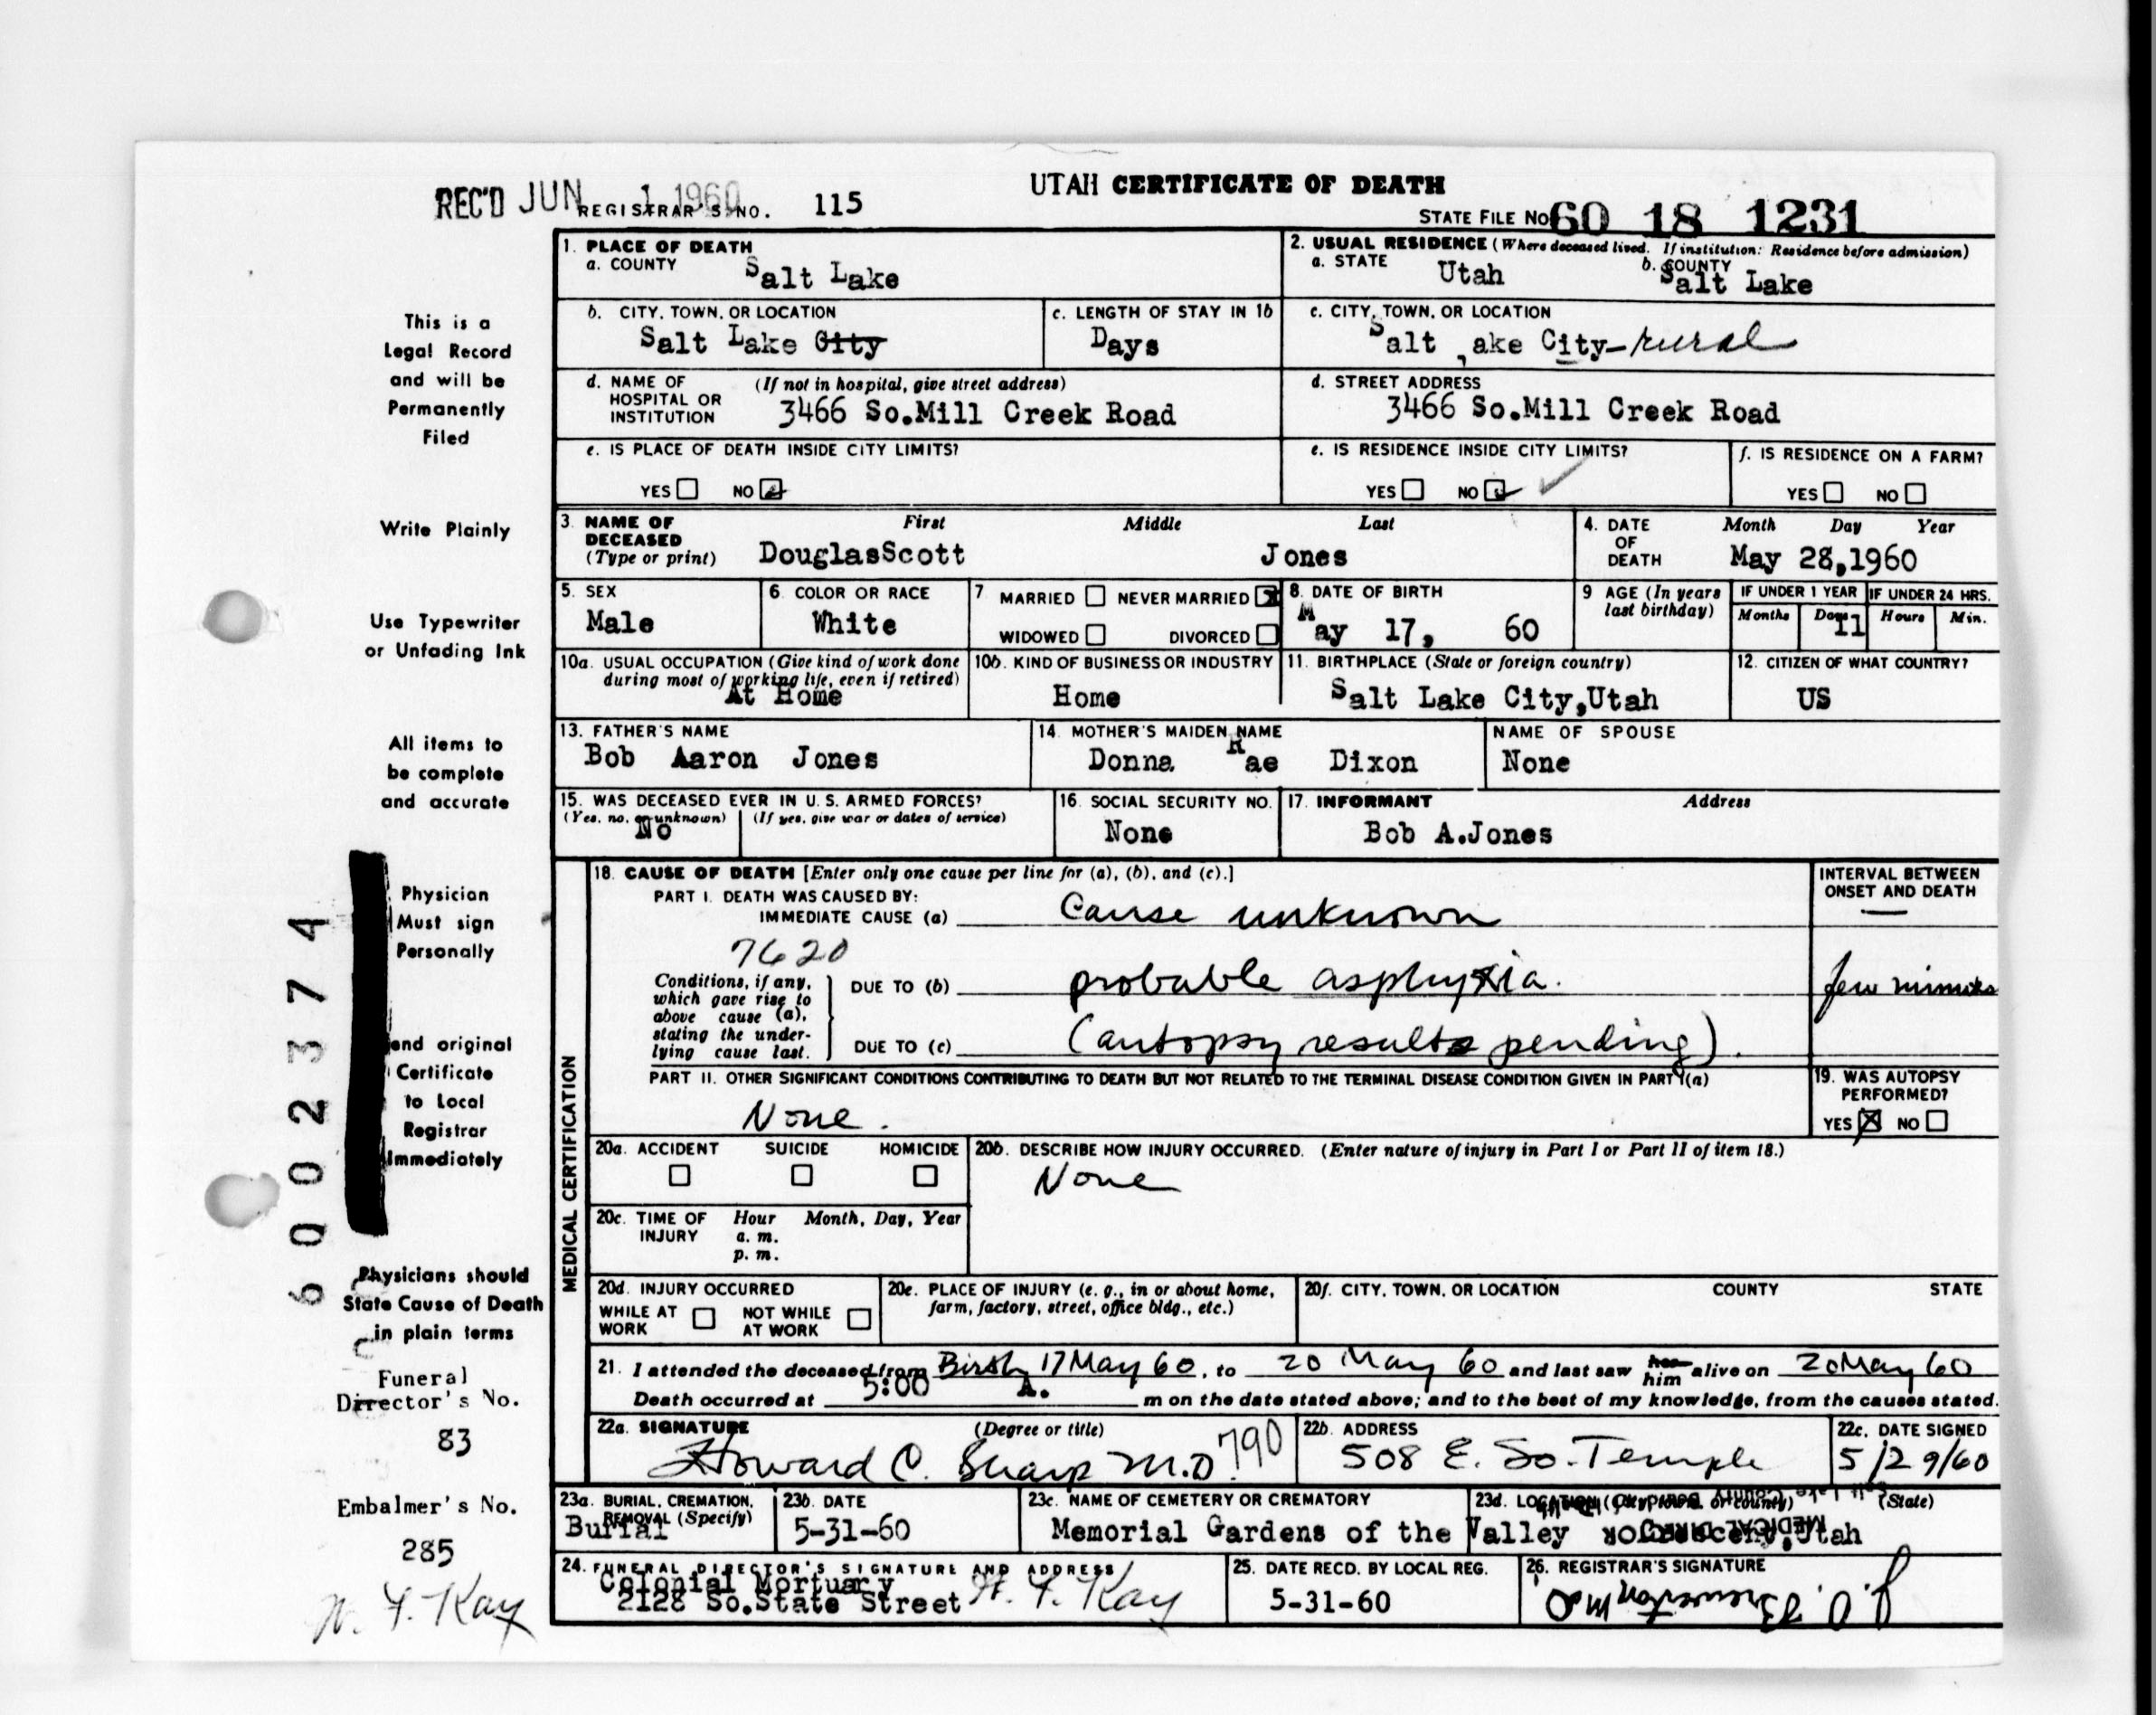 UTAH CERTIFICATE OF DEATH
REC'D JUN 1 1960
REGISTRAR'S NO. 115
STATE FILE No 60 18 1231
1. PLACE OF DEATH
a. COUNTY Salt Lake
2. USUAL RESIDENCE (Where deceased lived. If institution: Residence before admission)
a. STATE Utah b. COUNTY Salt Lake
b. CITY, TOWN, OR LOCATION
Salt Lake City
c. LENGTH OF STAY IN 1b
Days
c. CITY, TOWN, OR LOCATION
Salt ake City-rural
d. NAME OF HOSPITAL OR INSTITUTION (If not in hospital, give street address)
3466 So.Mill Creek Road
d. STREET ADDRESS
3466 So.Mill Creek Road
e. IS PLACE OF DEATH INSIDE CITY LIMITS?
YES NO
e. IS RESIDENCE INSIDE CITY LIMITS?
YES NO
f. IS RESIDENCE ON A FARM?
YES NO
3 NAME OF DECEASED (Type or print) First Middle Last
DouglasScott Jones
4. DATE OF DEATH Month Day Year
May 28,1960
5. SEX
Male
6. COLOR OR RACE
White
7 MARRIED NEVER MARRIED X
WIDOWED DIVORCED
8. DATE OF BIRTH
May 17, 60
9 AGE (In years last birthday)
IF UNDER 1 YEAR IF UNDER 24 HRS.
Months Days Hours Min.
11
10a. USUAL OCCUPATION (Give kind of work done during most of working life, even if retired)
At Home
10b. KIND OF BUSINESS OR INDUSTRY
Home
11. BIRTHPLACE (State or foreign country)
Salt Lake City,Utah
12. CITIZEN OF WHAT COUNTRY?
US
13. FATHER'S NAME
Bob Aaron Jones
14. MOTHER'S MAIDEN NAME
Donna Rae Dixon
NAME OF SPOUSE
None
15. WAS DECEASED EVER IN U. S. ARMED FORCES?
(Yes, no, or unknown) (If yes, give war or dates of service)
No
16. SOCIAL SECURITY NO.
None
17. INFORMANT Address
Bob A.Jones
MEDICAL CERTIFICATION
18. CAUSE OF DEATH [Enter only one cause per line for (a), (b), and (c).]
INTERVAL BETWEEN ONSET AND DEATH
PART I. DEATH WAS CAUSED BY:
IMMEDIATE CAUSE (a) Cause unknown —
7620
Conditions, if any, which gave rise to above cause (a), stating the underlying cause last.
DUE TO (b) probable asphyxia. few minutes
DUE TO (c) (autopsy results pending).
PART II. OTHER SIGNIFICANT CONDITIONS CONTRIBUTING TO DEATH BUT NOT RELATED TO THE TERMINAL DISEASE CONDITION GIVEN IN PART I(a)
None.
19. WAS AUTOPSY PERFORMED?
YES X NO
20a. ACCIDENT SUICIDE HOMICIDE
20b. DESCRIBE HOW INJURY OCCURRED. (Enter nature of injury in Part I or Part II of item 18.)
None
20c. TIME OF INJURY Hour Month, Day, Year
a. m.
p. m.
20d. INJURY OCCURRED
WHILE AT WORK NOT WHILE AT WORK
20e. PLACE OF INJURY (e. g., in or about home, farm, factory, street, office bldg., etc.)
20f. CITY, TOWN, OR LOCATION COUNTY STATE
21. I attended the deceased from Birth 17 May 60, to 20 May 60 and last saw her him alive on 20 May 60
Death occurred at 5:00 A. m on the date stated above; and to the best of my knowledge, from the causes stated.
22a. SIGNATURE (Degree or title)
Howard C. Sharp M.D. 790
22b. ADDRESS
508 E. So. Temple
22c. DATE SIGNED
5/29/60
23a. BURIAL, CREMATION, REMOVAL (Specify)
Burial
23b. DATE
5-31-60
23c. NAME OF CEMETERY OR CREMATORY
Memorial Gardens of the Valley
23d. LOCATION (City, town, or county) (State)
Crescent,Utah
24. FUNERAL DIRECTOR'S SIGNATURE AND ADDRESS
Colonial Mortuary
2128 So.State Street W. F. Kay
25. DATE RECD. BY LOCAL REG.
5-31-60
26. REGISTRAR'S SIGNATURE
This is a
Legal Record
and will be
Permanently
Filed
Write Plainly
Use Typewriter
or Unfading Ink
All items to
be complete
and accurate
Physician
Must sign
Personally
end original
Certificate
to Local
Registrar
Immediately
6002374
Physicians should
State Cause of Death
in plain terms
Funeral
Director's No.
83
Embalmer's No.
285
W. F. Kay